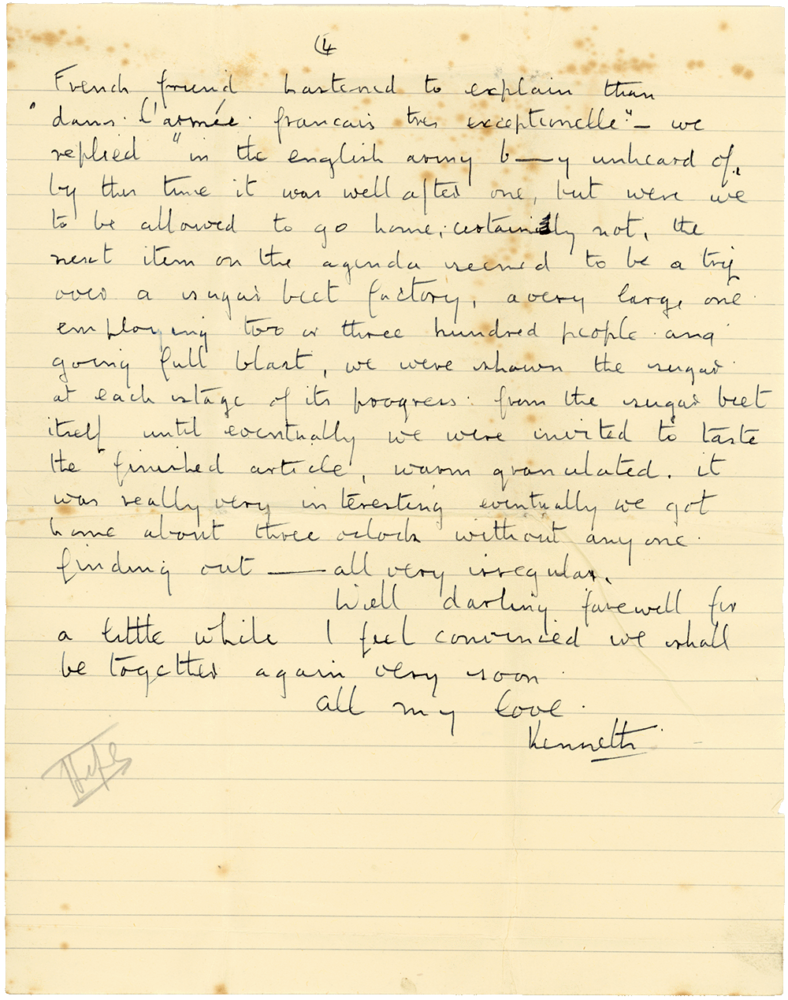 (4
French friend hastened to explain than
"dans l'armée francais tres exceptionelle" — we
replied "in the english army b—y unheard of,
by this time it was well after one, but were we
to be allowed to go home, certainly not, the
next item on the agenda seemed to be a trip
over a sugar beet factory, a very large one
employing two or three hundred people and
going full blast, we were shown the sugar
at each stage of its progress from the sugar beet
itself until eventually we were invited to taste
the finished article, warm granulated. it
was really very interesting eventually we got
home about three oclock without anyone
finding out — all very irregular.
Well darling farewell for
a little while I feel convinced we shall
be together again very soon
all my love.
Kenneth